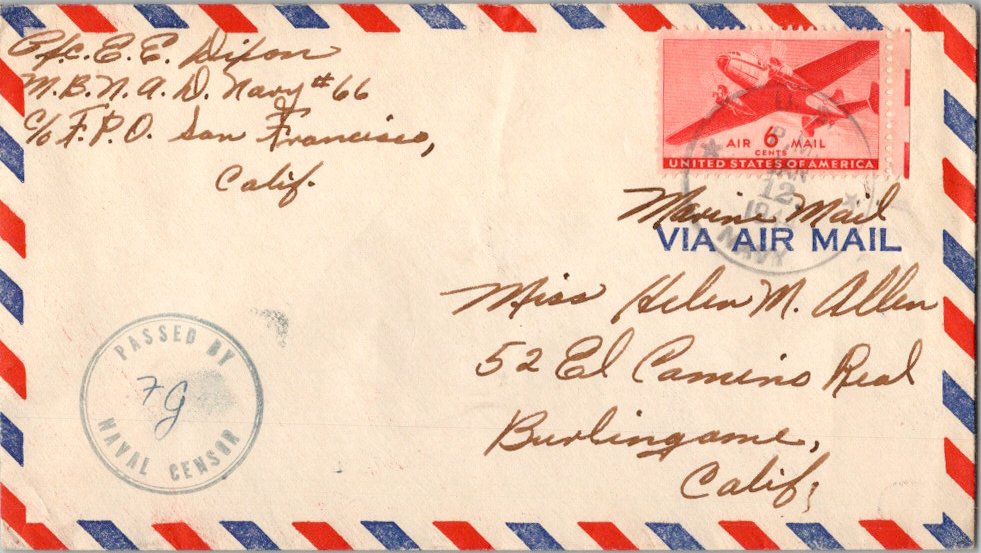 Pfc. E. E. Dixon
M. B. N. A. D. Navy #66
c/o F. P. O. San Francisco,
Calif.
AIR 6 MAIL
CENTS
UNITED STATES OF AMERICA
P.M
JAN
12
NAVY
Marine Mail
VIA AIR MAIL
Miss Helen M. Allen
52 El Camino Real
Burlingame,
Calif,
PASSED BY
FG
NAVAL CENSOR